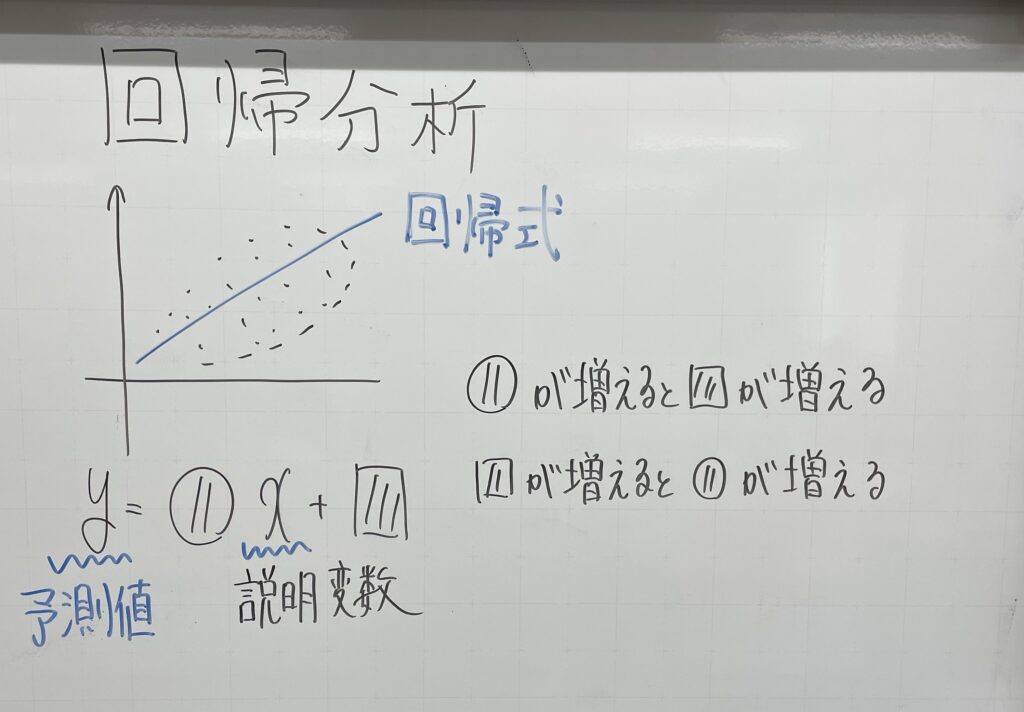 回帰分析
回帰式
が増えると が増える
が増えると が増える
y = x +
予測値 説明変数